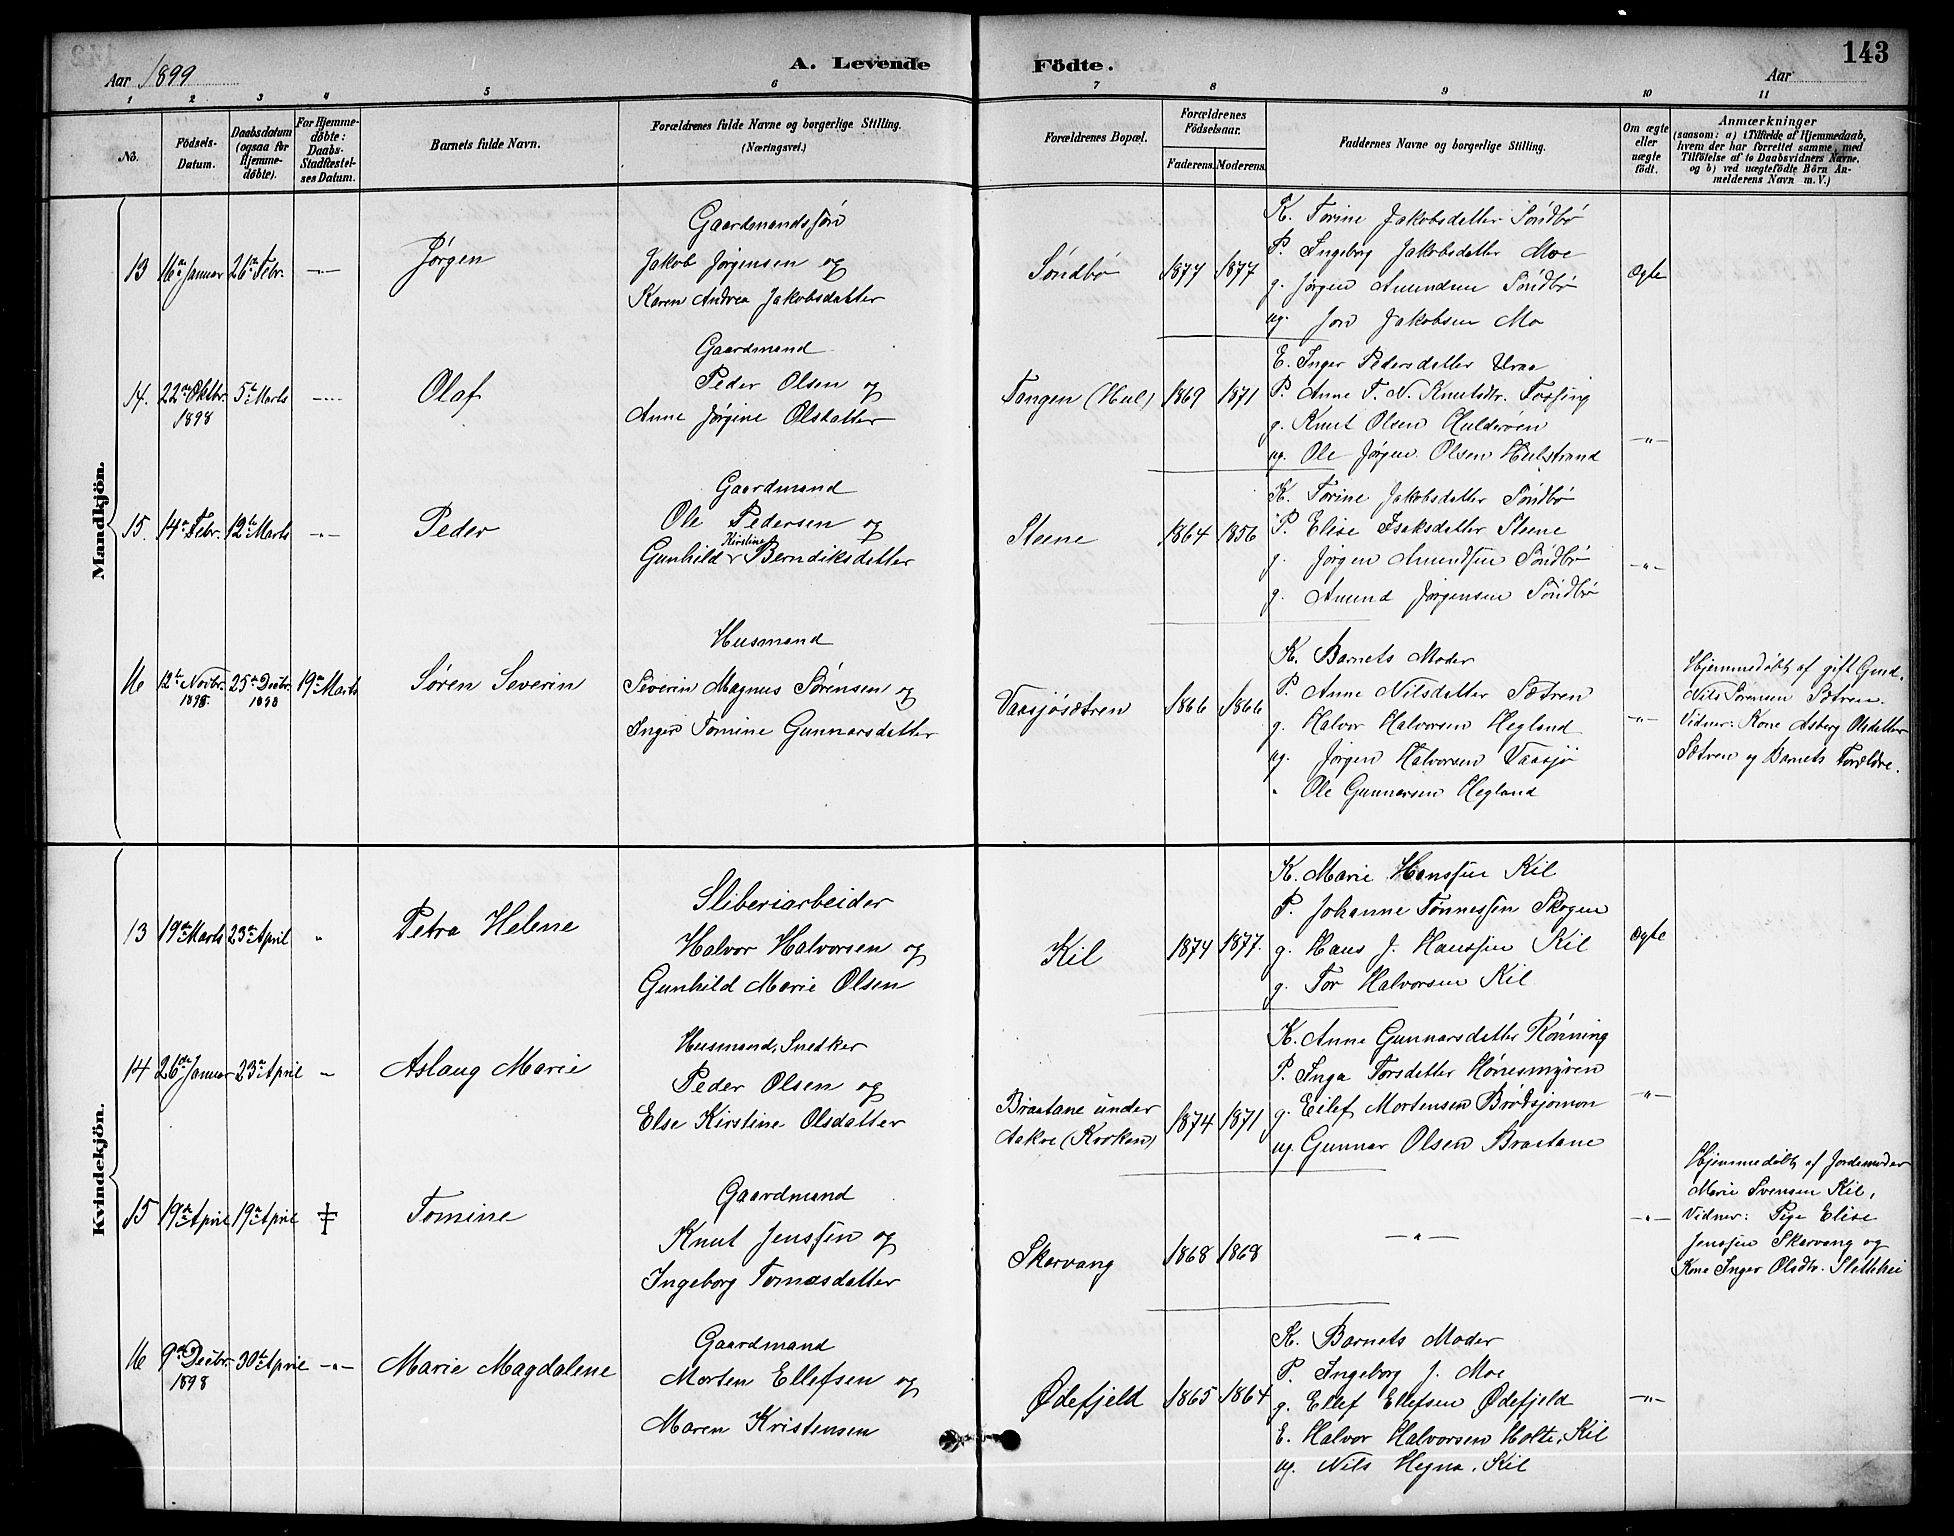 143
Aar 1899
A. Levende Födte.
Aar
1 2 3 4 5 6 7 8 9 10 11
No.
Födsels-Datum.
Daabsdatum (ogsaa for Hjemme-döbte).
For Hjemme-döbte: Daabs-Stadfæstel-ses Datum.
Barnets fulde Navn.
Forældrenes fulde Navne og borgerlige Stilling.
(Næringsvei.)
Forældrenes Bopæl.
Forældrenes Födselsaar.
Faderens. Moderens.
Faddernes Navne og borgerlige Stilling.
Om ægte eller uægte födt.
Anmærkninger
(saasom: a) i Tilfælde af Hjemmedaab,
hvem der har forrettet samme, med
Tilföielse af to Daabsvidners Navne,
og b) ved uægtefödte Börn An-
melderens Navn m. V.)
Mandkjön.
13 16de Januar 26de Febr. -"- Jørgen
Gaardmandssøn
Jakob Jørgensen og
Karen Andrea Jakobsdatter
Söndbö 1877 1877
K. Torine Jakobsdatter Söndbö
P. Ingeborg Jakobsdatter Moe
g. Jørgen Amundsen Söndbö
ug. Jon Jakobsen Mo
Ægte
14. 22de Oktbr. 1898 5te Marts -"- Olaf
Gaardmand
Peder Olsen og
Anne Jørgine Olsdatter
Tangen (Hul) 1869 1871
E. Inger Pedersdatter Uraa
P. Anne T. N. Knutsdtr.
g. Knut Olsen Hulderøen
ug. Ole Jørgen Olsen Hulstrand
-"-
15. 14de Febr. 12te Marts -"- Peder
Gaardmand
Ole Pedersen og
Kirstine
Gunhild Berndiksdatter
Steene 1864 1856
K. Torine Jakobsdatter Söndbö
P. Elise Isaksdatter Steene
g. Jørgen Amundsen Söndbö
g. Amund Jørgensen Söndbö
-"-
16 12te Novbr. 1898. 25de Decbr. 1898 19de Marts Søren Severin
Husmand
Severin Magnus Sørensen og
Inger Tomine Gunnarsdatter
Vaasjøsætren 1866 1866
K. Barnets Moder
P. Anne Nilsdatter Sætren
g. Halvor Halvorsen Hegland
ug. Jørgen Halvorsen Vaasjø
" Ole Gunnarsen Hegland
-"-
Hjemmedøbt af gift Gmd.
Nils Sørensen Sætren.
Vidner: Kone Asberg Olsdatter
Sætren og Barnets Forældre.
Kvindekjön.
13 19de Marts 23de April " Petra Helene
Sliberiarbeider
Halvor Halvorsen og
Gunhild Marie Olsen
Kil 1874 1877.
K. Marie Hanssen Kil
P. Johanne Tønnessen Skogen
g. Hans J. Hanssen Kil
g. Tor Halvorsen Kil
Ægte
14 26de Januar 23de April " Aslaug Marie
Husmand, Snedker
Peder Olsen og
Else Kirstine Olsdatter
Braatane under
Aakre (Kroken) 1874 1871
K. Anne Gunnarsdatter Rønning
P. Inga Torsdatter Hønesmyren
g. Eilef Mortensen Brødsjømon
ug. Gunnar Olsen Braatane
-"-
15 19de April 19de April ‡ Tomine
Gaardmand
Knut Jenssen og
Ingeborg Tomasdatter
Skarvang 1868 1868
-"-
-"-
Hjemmedøbt af Jordemoder
Marie Svensen Kil,
Vidner: Pige Elise
Jenssen Skarvang og
Kone Inger Olsdtr. Slettehei
16 9de Decbr. 1898 30te April -"- Marie Magdalene
Gaardmand
Morten Ellefsen og
Maren Kristensen
Ødefjeld 1865 1864
K. Barnets Moder
P. Ingeborg J. Moe
g. Ellef Ellefsen Ødefjeld
E. Halvor Halvorsen Holte, Kil
ug. Nils Hegna, Kil
-"-